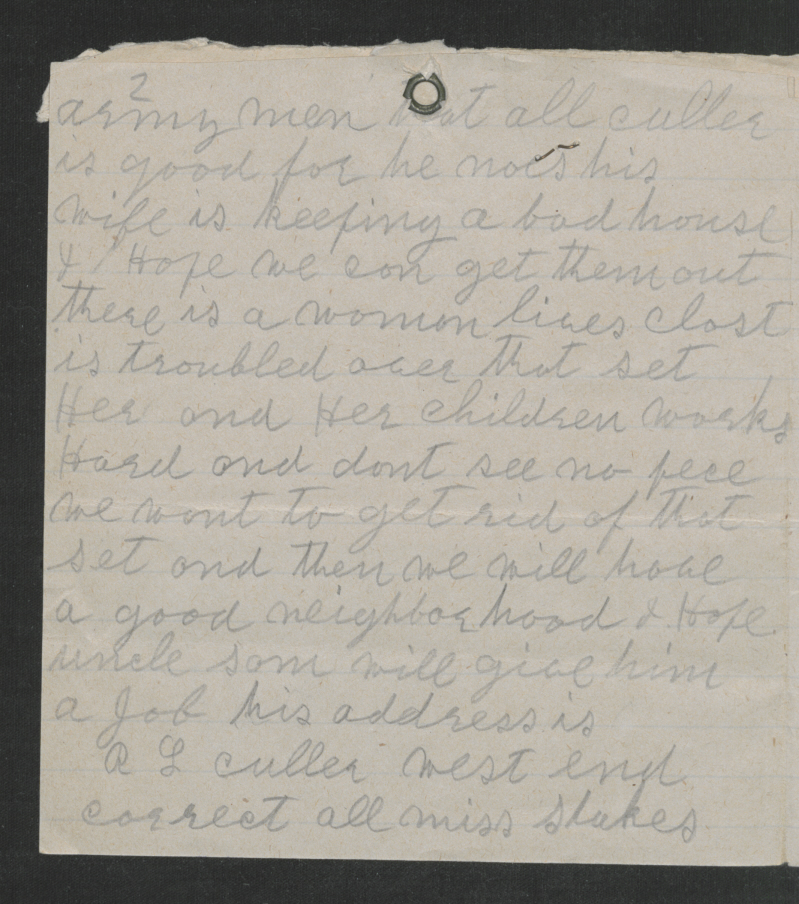 2
army men that all culler
is good for he noes his
wife is keeping a bad house
& I Hope we can get them out
there is a woman lives clost
is troubled over that set
Her and Her children works
Hard and dont see no pece
we want to get rid of that
set and then we will have
a good neighborhood & Hope
uncle sam will give him
a Job his address is
R L culler west end
correct all miss stakes